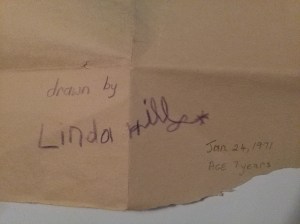 drawn by
Linda Hills
Jan 24, 1971
Age 7 years